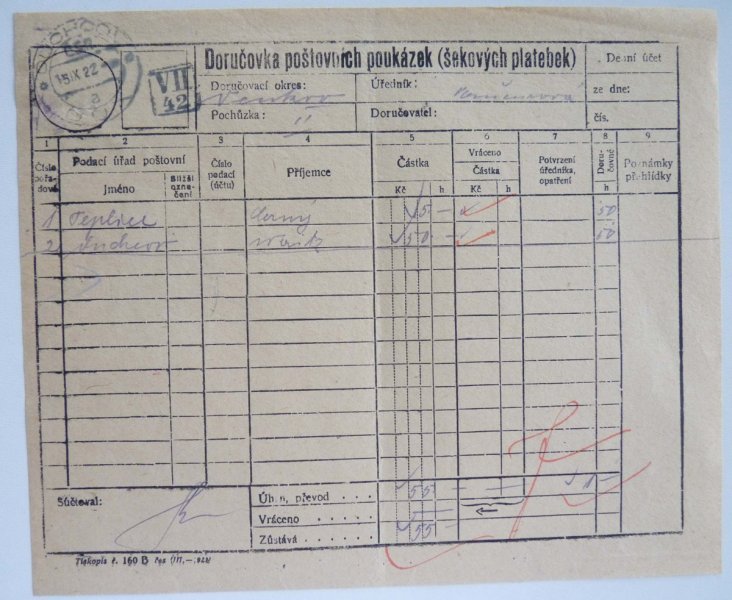 DUCHCOV
15.IX.22
VII
42
Doručovka poštovních poukázek (šekových platebek)
Doručovací okres: Venkov
Úředník:
Pochůzka: II
Doručovatel:
Denní účet
ze dne:
čís.
1 2 3 4 5 6 7 8 9
Číslo pořadové
Podací úřad poštovní
Jméno
Bližší označení
Číslo podací (účtu)
Příjemce
Částka
Kč h
Vráceno
Částka
Kč h
Potvrzení úředníka, opatření
Doručovné
h
Poznámky přehlídky
1 Teplice Černý 5 — 50
2 Duchcov 50 — 50
Súčtoval:
Úhrn, převod . . . . 55 — — 1 —
Vráceno . . . . . . . —
Zůstává . . . . . . . 55 —
Tiskopis č. 160 B